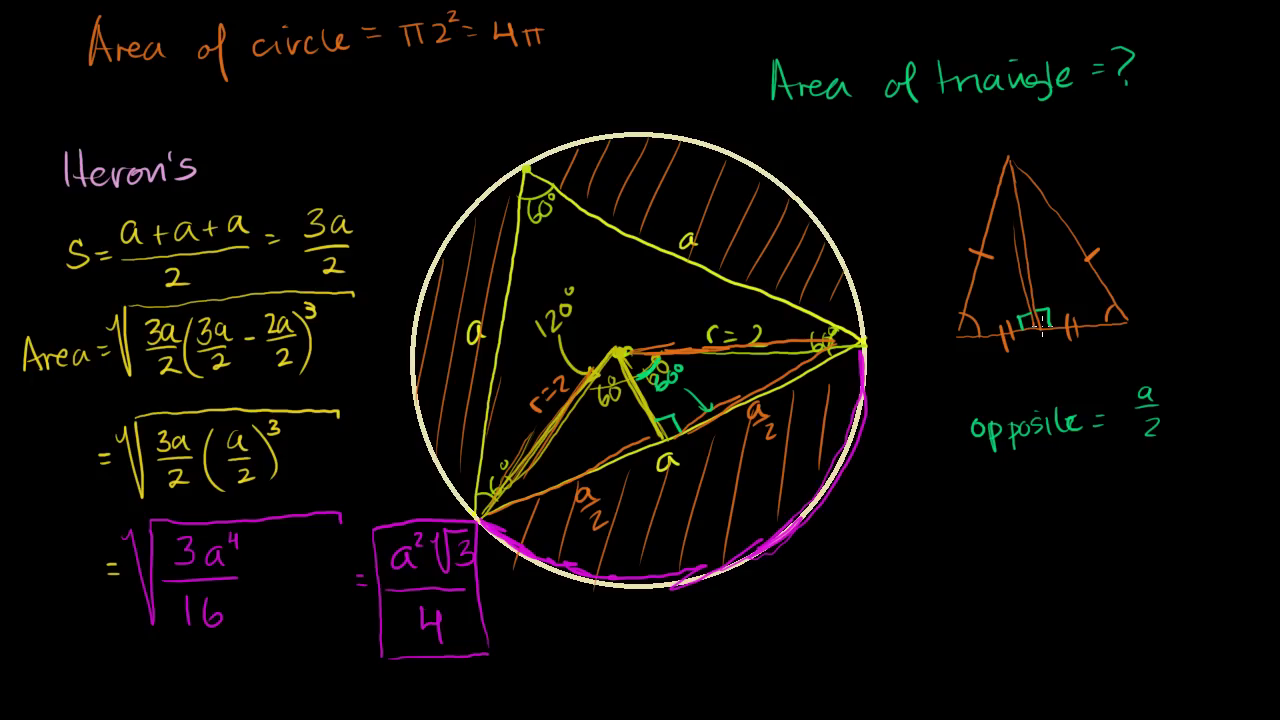 Area of circle = π2² = 4π
Area of triangle = ?
Heron's
S = (a + a + a)/2 = 3a/2
Area = √(3a/2 (3a/2 - 2a/2)³)
= √(3a/2 (a/2)³)
= √(3a⁴/16) = a²√3/4
60°
a
a
120°
r = 2
60°
r = 2
60
60°
a/2
a
60°
a/2
opposite = a/2